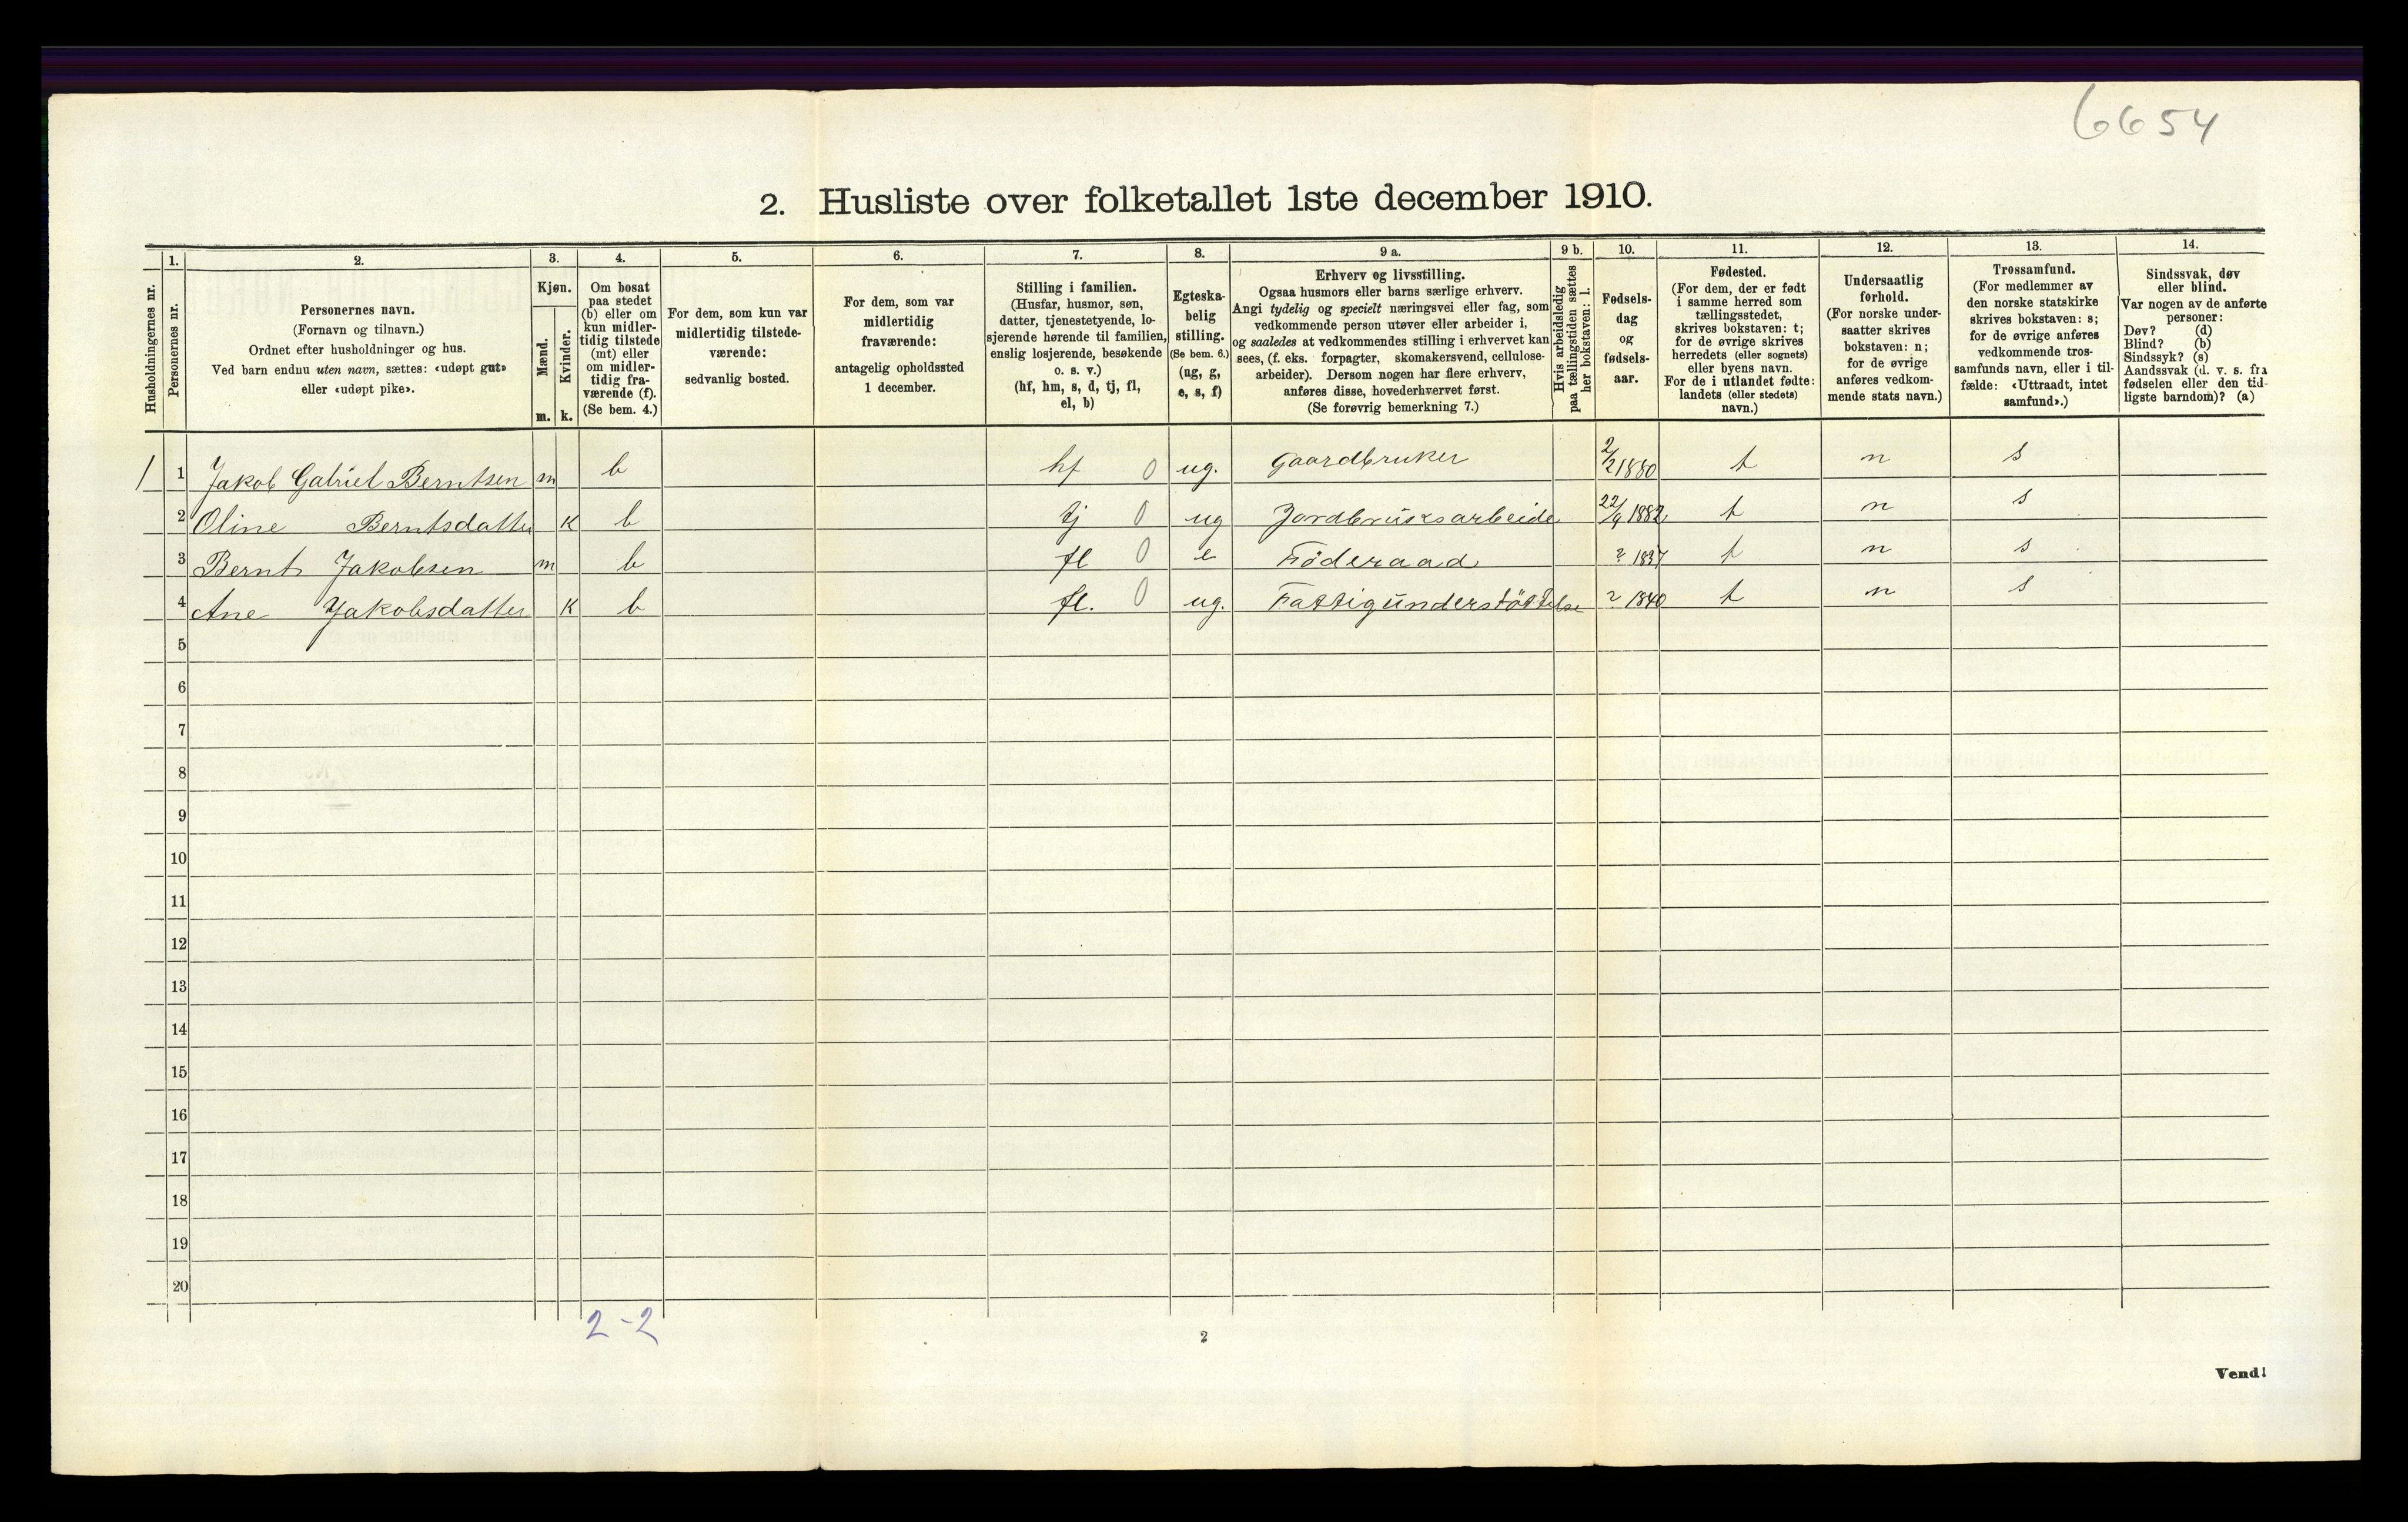 6654
2. Husliste over folketallet 1ste december 1910.
Husholdningernes nr.
1.
Personernes nr.
2.
Personernes navn.
(Fornavn og tilnavn.)
Ordnet efter husholdninger og hus.
Ved barn endnu uten navn, sættes: «udøpt gut»
eller «udøpt pike».
3.
Kjøn.
Mænd.
Kvinder.
m. k.
4.
Om bosat
paa stedet
(b) eller om
kun midler-
tidig tilstede
(mt) eller
om midler-
tidig fra-
værende (f).
(Se bem. 4.)
5.
For dem, som kun var
midlertidig tilstede-
værende:
sedvanlig bosted.
6.
For dem, som var
midlertidig
fraværende:
antagelig opholdssted
1 december.
7.
Stilling i familien.
(Husfar, husmor, søn,
datter, tjenestetyende, lo-
sjerende hørende til familien,
enslig losjerende, besøkende
o. s. v.)
(hf, hm, s, d, tj, fl,
el, b)
8.
Egteska-
belig
stilling.
(Se bem. 6.)
(ug, g,
e, s, f)
9 a.
Erhverv og livsstilling.
Ogsaa husmors eller barns særlige erhverv.
Angi tydelig og specielt næringsvei eller fag, som
vedkommende person utøver eller arbeider i,
og saaledes at vedkommendes stilling i erhvervet kan
sees, (f. eks. forpagter, skomakersvend, cellulose-
arbeider). Dersom nogen har flere erhverv,
anføres disse, hovederhvervet først.
(Se forøvrig bemerkning 7.)
9 b.
Hvis arbeidsledig
paa tællingstiden sættes
her bokstaven: l.
10.
Fødsels-
dag
og
fødsels-
aar.
11.
Fødested.
(For dem, der er født
i samme herred som
tællingsstedet,
skrives bokstaven: t;
for de øvrige skrives
herredets (eller sognets)
eller byens navn.
For de i utlandet fødte:
landets (eller stedets)
navn.)
12.
Undersaatlig
forhold.
(For norske under-
saatter skrives
bokstaven: n;
for de øvrige
anføres vedkom-
mende stats navn.)
13.
Trossamfund.
(For medlemmer av
den norske statskirke
skrives bokstaven: s;
for de øvrige anføres
vedkommende tros-
samfunds navn, eller i til-
fælde: «Uttraadt, intet
samfund».)
14.
Sindssvak, døv
eller blind.
Var nogen av de anførte
personer:
Døv? (d)
Blind? (b)
Sindssyk? (s)
Aandssvak (d. v. s. fra
fødselen eller den tid-
ligste barndom)? (a)
1 1 Jakob Gabriel Berntsen m b hf 0 ug. Gaardbruker 2/2 1880 t n s
2 Oline Berntsdatter k b tj 0 ug Jordbruksarbeide 22/9 1882 t n s
3 Bernt Jakobsen m b fl 0 e Föderaad ? 1837 t n s
4 Ane Jakobsdatter k b fl. 0 ug. Fattigunderstöttelse ? 1840 t n s
5
6
7
8
9
10
11
12
13
14
15
16
17
18
19
20
2-2
2
Vend!